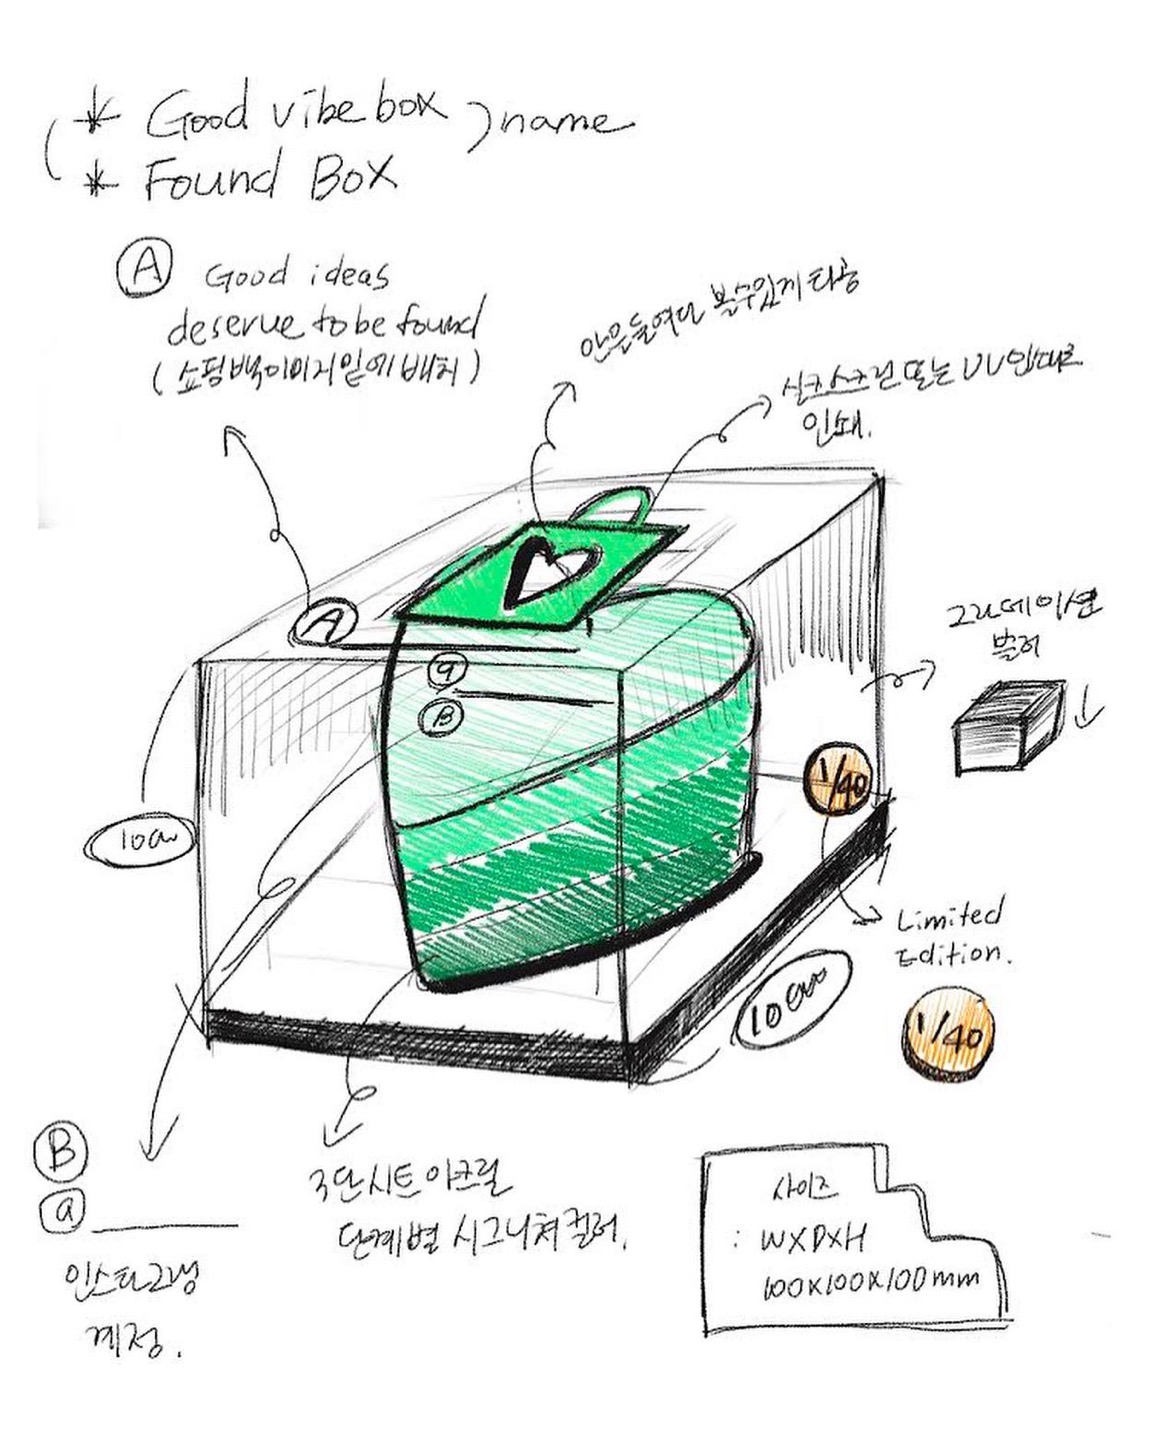 * Good vibe box
) name
* Found Box
A Good ideas
deserve to be found
(쇼핑백이미지밑에 배치)
안을들여다 볼수있게 타공
실크스크린 또는 UV인쇄로
인쇄.
A
@
B
그라데이션
컬러
1/40
10cm
Limited
Edition.
10cm
1/40
B
@
인스타그램
계정.
3단시트 아크릴
단계별 시그니쳐컬러.
사이즈
: WXDXH
100X100X100mm